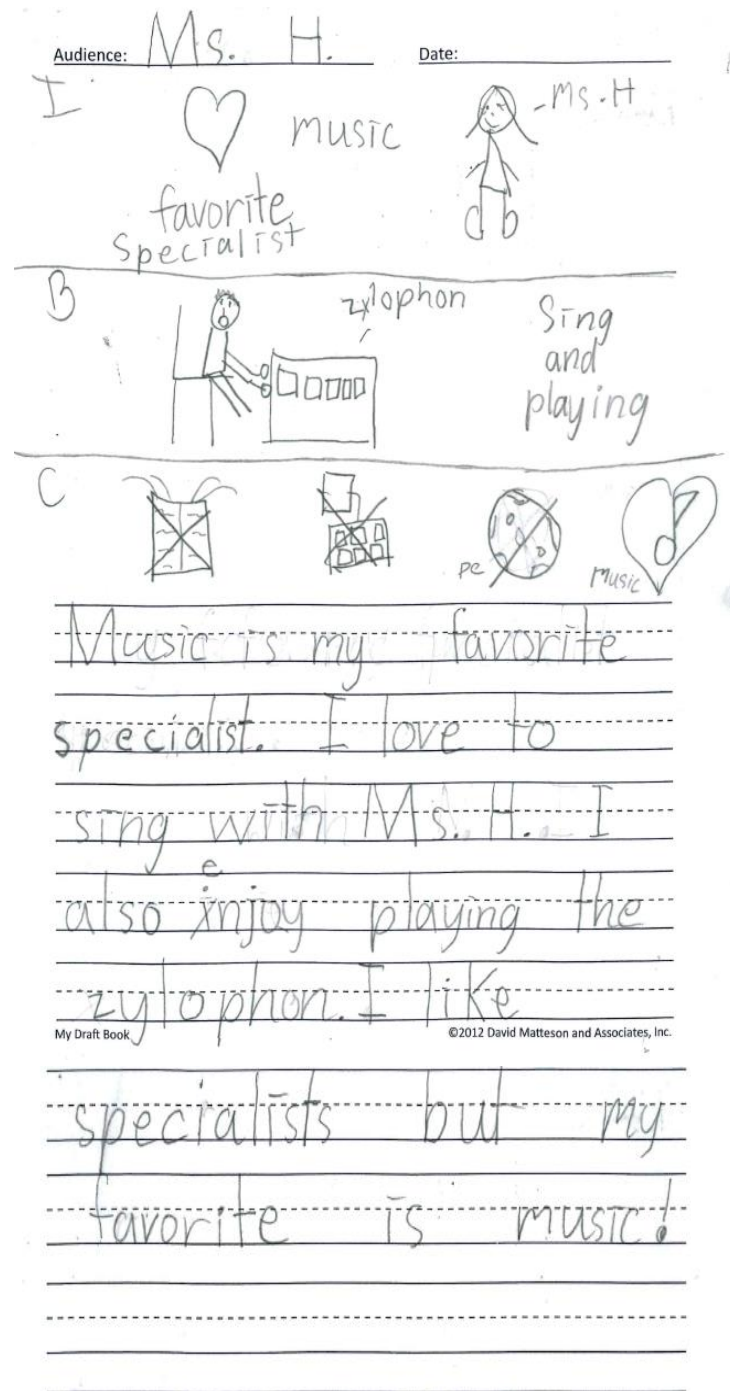 Audience: Ms. H. Date:
I
music
-Ms. H
favorite
specialist
B
zylophon
Sing
and
playing
C
pe
music
Music is my favorite
specialist. I love to
sing with Ms. H. I
also enjoy playing the
zylophon. I like
My Draft Book ©2012 David Matteson and Associates, Inc.
specialists but my
favorite is music!